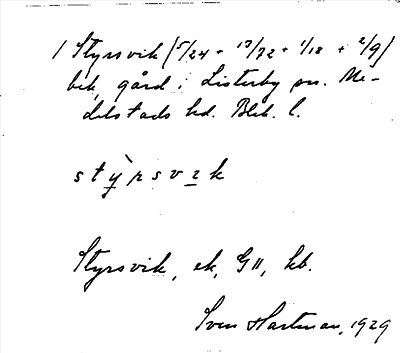 1 Styrsvik (5/24 + 13/72 + 1/18 + 2/9)
bek, gård i Listerby sn. Me-
delstads hd. Blek. l.
stỳrsvik
Styrsvik, ek, G11, kb.
Sven Hartman, 1929